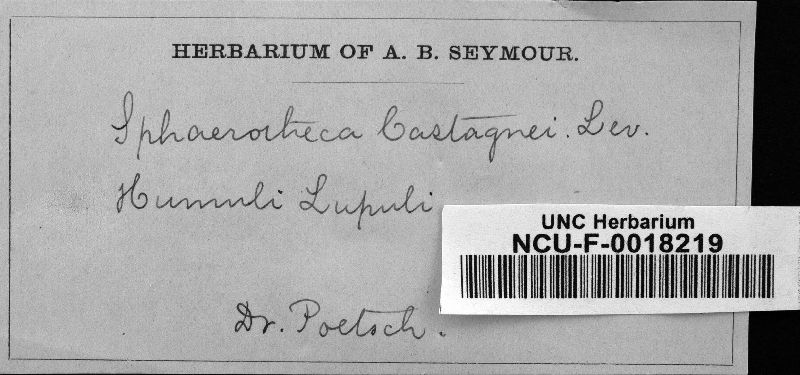 HERBARIUM OF A. B. SEYMOUR.
Sphaerotheca Castagnei. Lev.
Humuli Lupuli
UNC Herbarium
NCU-F-0018219
Dr. Poetsch.